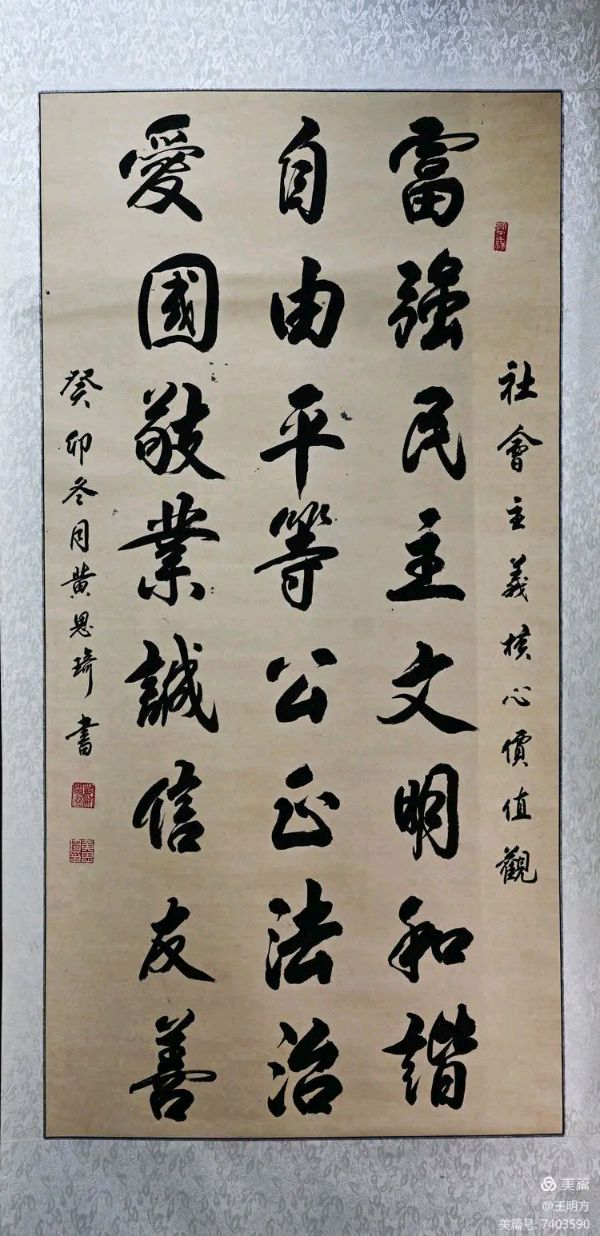 社會主義核心價值觀
富强民主文明和諧
自由平等公正法治
愛國敬業誠信友善
癸卯冬月黄恩琦書
美篇
@王明方
美篇号: 7403590